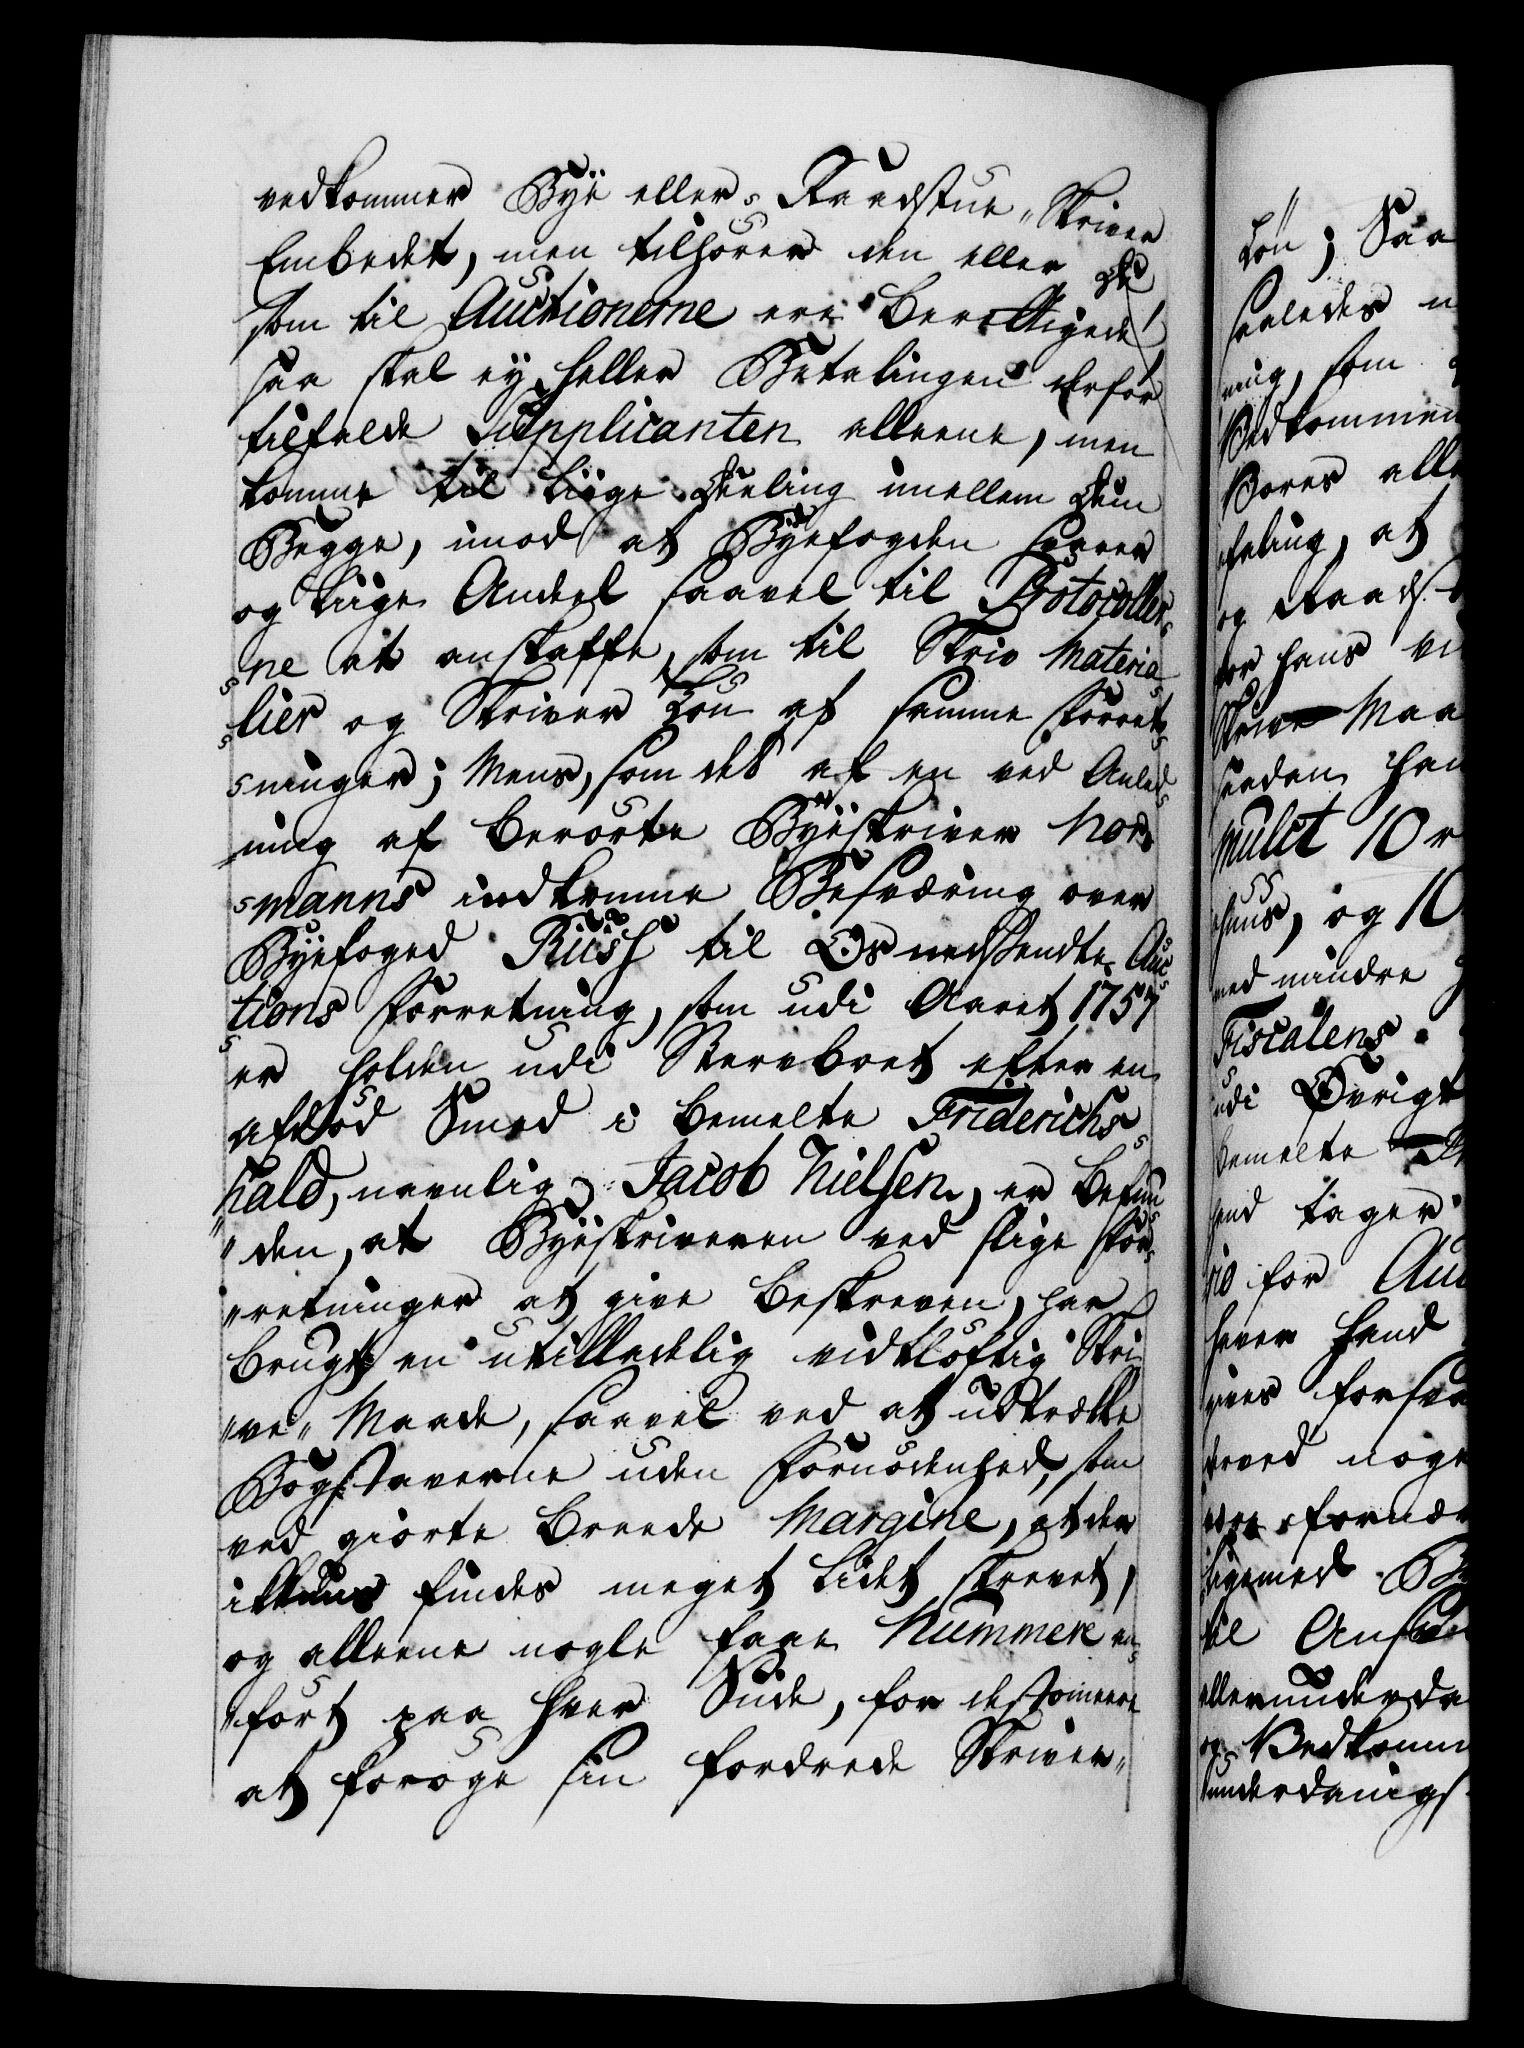 vedkommer Bye eller Raadstue„Skriver
Embedet, men tilhører den eller de
som til Auctionerne ere berettigede
saa skal ey heller Betalingen derfor
tilfalde Supplicanten alleene, men
komme til liige Deeling imellem dem
Begge, imod at Byefogden svarer
og liige Andeel saavel til Protocoller
ne at anskaffe, som til Skriv Materia
lier og Skriver Løn af samme Forret
ninger; Mens, som det af en ved Anled
ning af berørte Byeskriver Nor
manns indkomne Besværing over
Byefoged Rüsh til Os nedsendte Auc
tions Forretning, som udi Aaret 1757
er holden udi Stervboet efter en
afdød Smed i bemelte Friderichs
hald, navnlig Jacob Nielsen, er befun
den, at Byeskriveren ved slige For
retninger at give beskreven, har
brugt en utilladelig vidtløftig Skri
ve„Maade, saavel ved at udtrække
Bogstaverne uden Fornødenhed, som
ved giorte breede Margine, at der
ikkuns findes meget lidet skrevet,
og alleene nogle faae Nummere an
ført paa hver Side, for destomeere
at forøge sin fordrede Skriver„
Løn; Saa
saaledes
ning, som
Vedkommen
Vores alle
faling, at
og Raads
for hans
Skrive Maa
saadan
mulct 10 r
huus, og 10
med mindre
Fiscalens
udi Øvrigt
bemelte
hand tager
rio for Auc
haver hand
gives forsva
derved noge
være fornær
ligemed
til
allerunderda
og Vedkomm
underdanigs